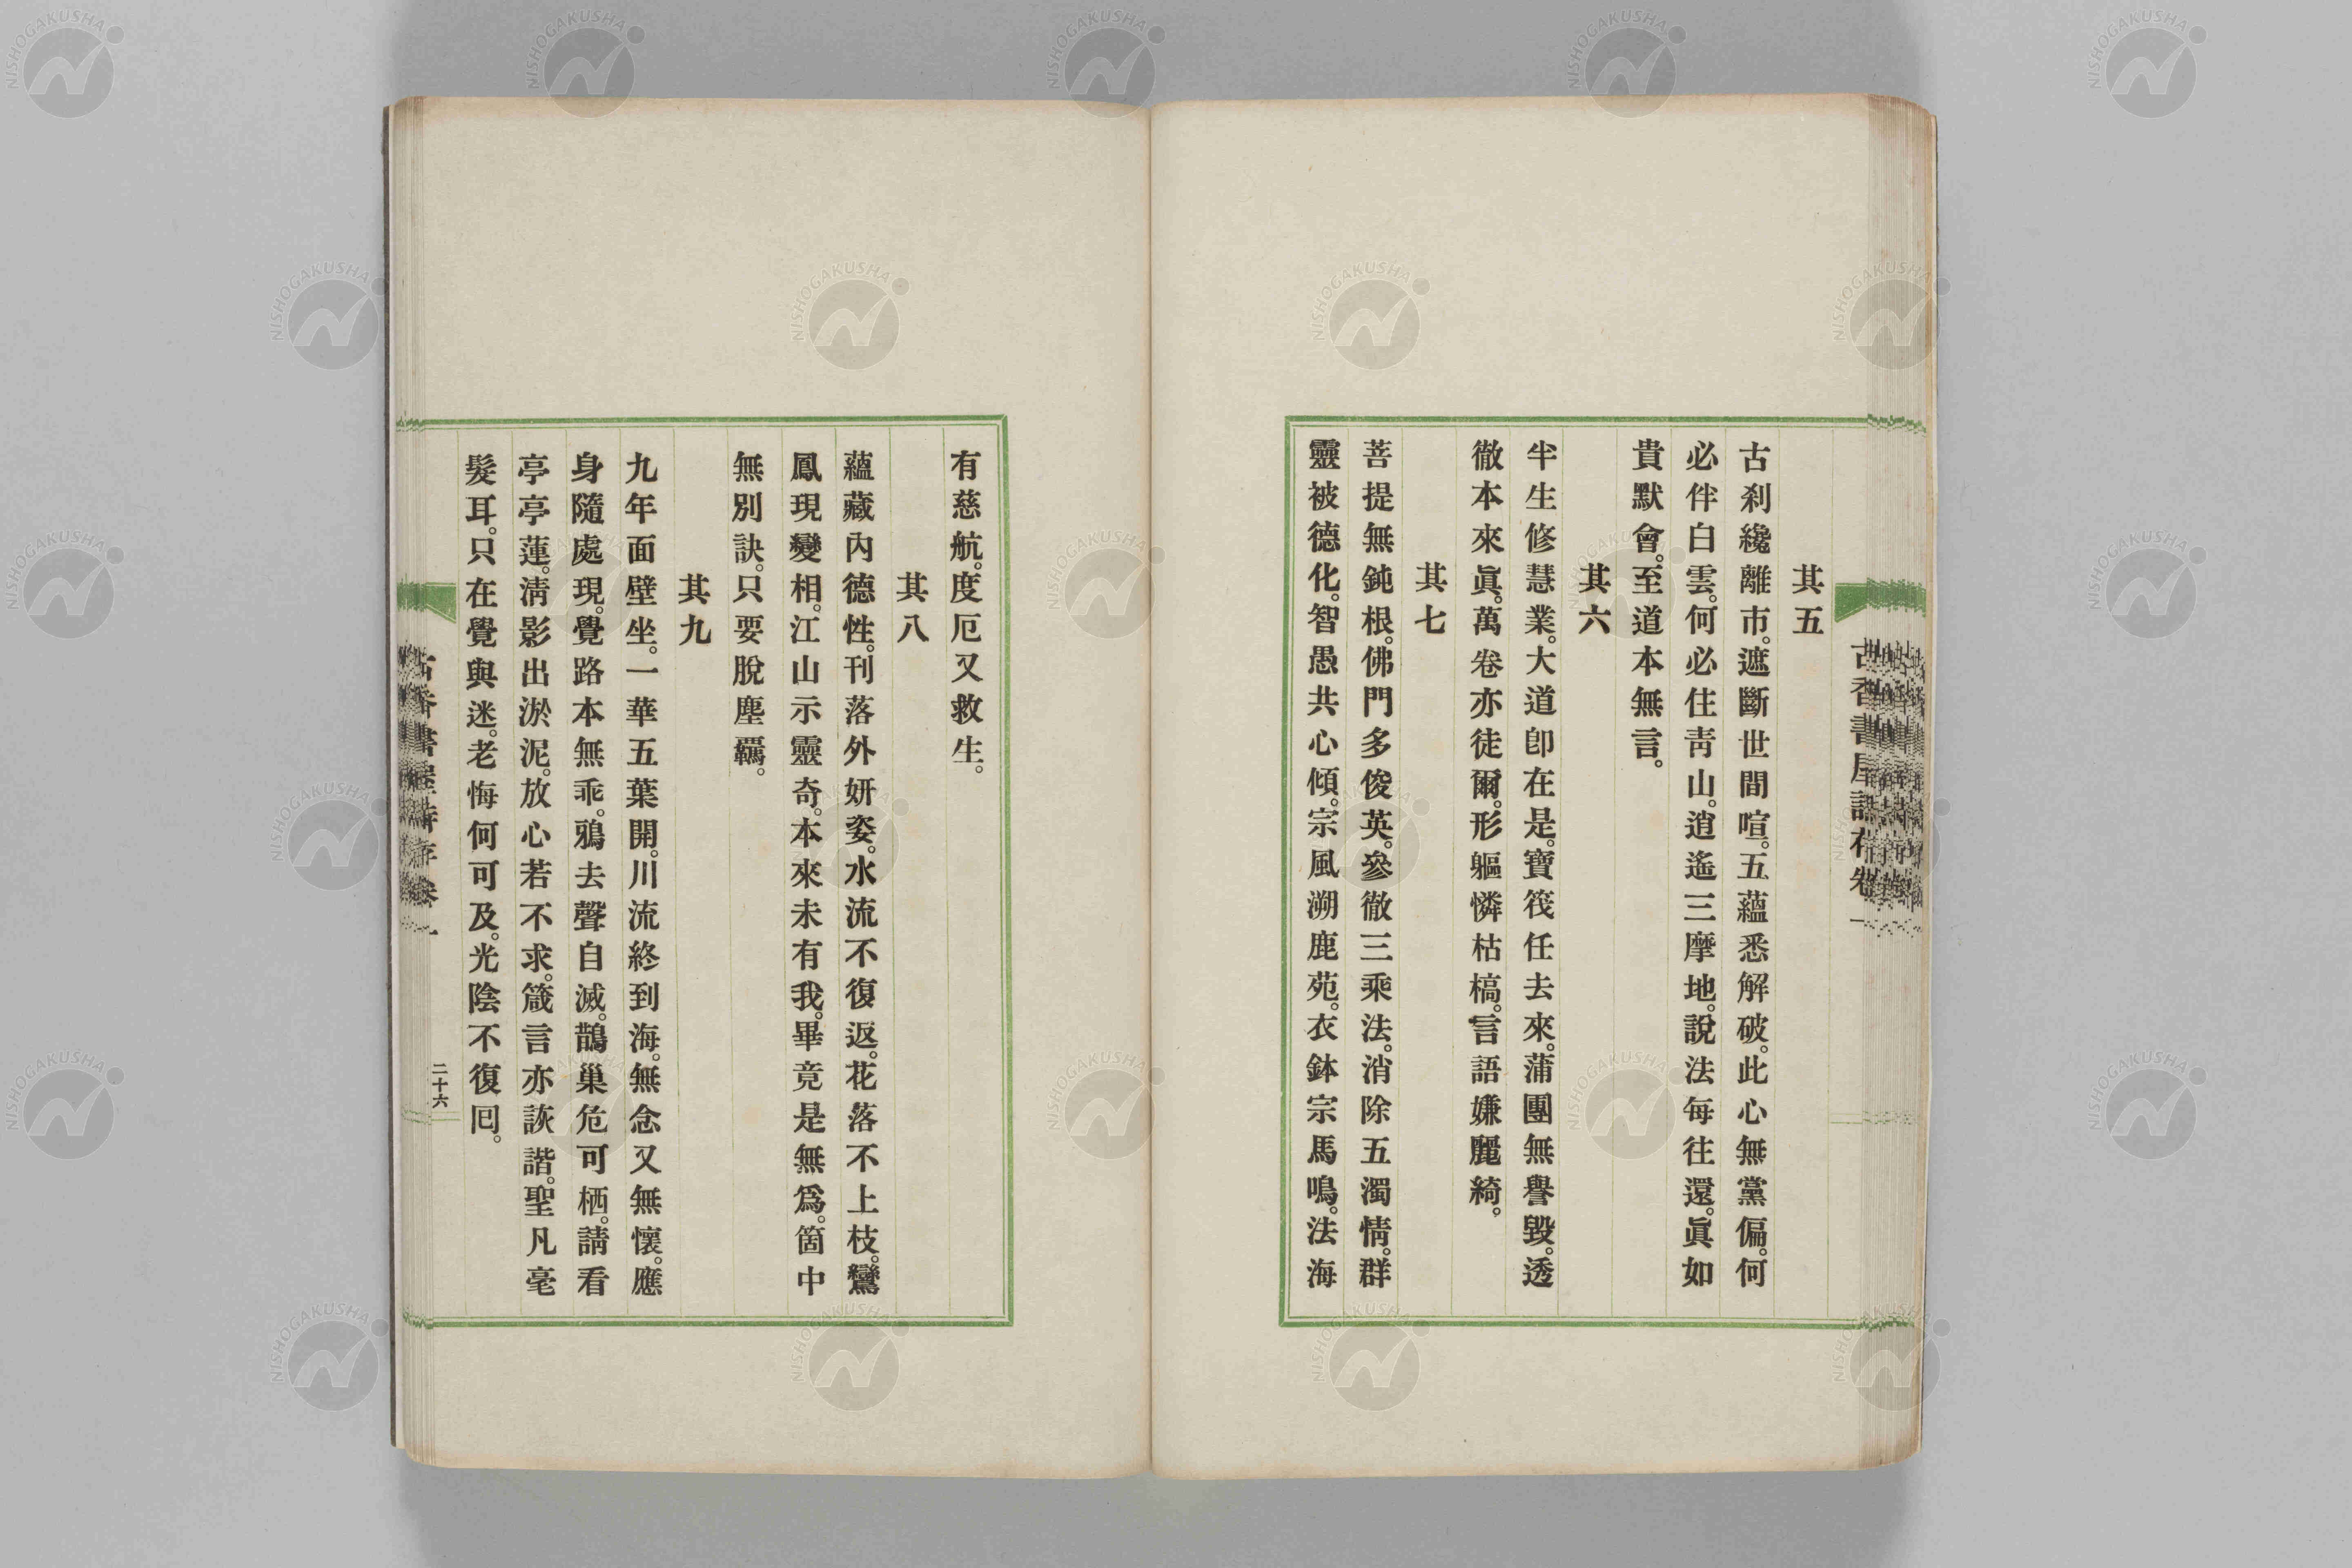 其五
古刹纔離市。遮斷世間喧。五蘊悉解破。此心無黨偏。何
必伴白雲。何必住靑山。逍遙三摩地。說法每往還。眞如
貴默會。至道本無言。
其六
半生修慧業。大道卽在是。寶筏任去來。蒲團無譽毀。透
徹本來眞。萬卷亦徒爾。形軀憐枯槁。言語嫌麗綺。
其七
菩提無鈍根。佛門多俊英。參徹三乘法。消除五濁情。群
靈被德化。智愚共心傾。宗風溯鹿苑。衣鉢宗馬鳴。法海
有慈航。度厄又救生。
其八
蘊藏內德性。刊落外妍姿。水流不復返。花落不上枝。鸞
鳳現變相。江山示靈奇。本來未有我。畢竟是無爲。箇中
無別訣。只要脫塵羈。
其九
九年面壁坐。一華五葉開。川流終到海。無念又無懷。應
身隨處現。覺路本無乖。鴉去聲自滅。鵲巢危可栖。請看
亭亭蓮。淸影出淤泥。放心若不求。箴言亦詼諧。聖凡毫
髮耳。只在覺與迷。老悔何可及。光陰不復囘。
古香書屋詩存卷一
二十六
NISHOGAKUSHA